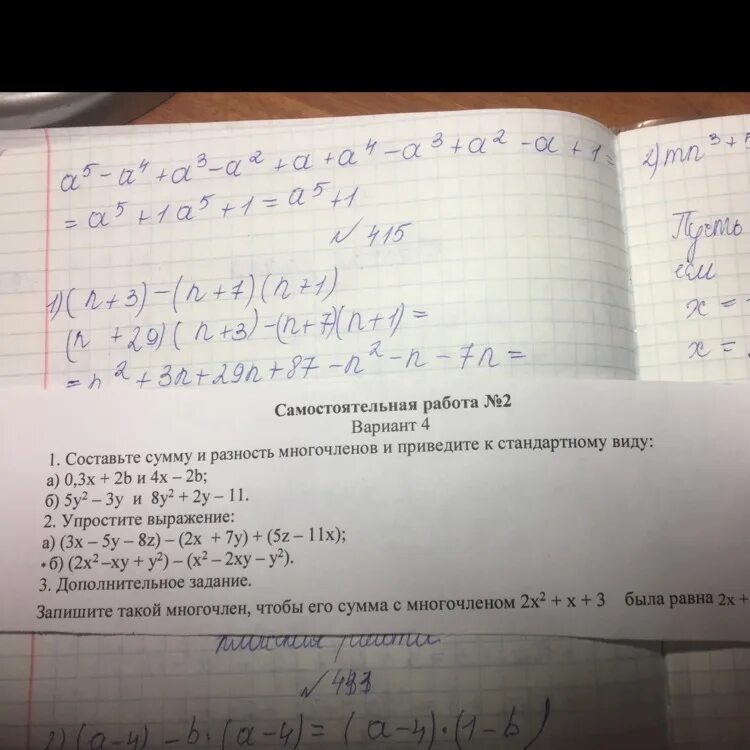 a⁵ - a⁴ + a³ - a² + a + a⁴ - a³ + a² - a + 1 =
= a⁵ + 1 a⁵ + 1 = a⁵ + 1
№ 415
1) (n + 3) - (n + 7) (n + 1)
(n + 29) (n + 3) - (n + 7)(n + 1) =
= n² + 3n + 29n + 87 - n² - n - 7n =
2) mn³ +
Пусть
x =
x =
Самостоятельная работа №2
Вариант 4
1. Составьте сумму и разность многочленов и приведите к стандартному виду:
а) 0,3x + 2b и 4x – 2b;
б) 5y² – 3y и 8y² + 2y – 11.
2. Упростите выражение:
а) (3x – 5y – 8z) – (2x + 7y) + (5z – 11x);
б) (2x² –xy + y²) – (x² – 2xy – y²).
3. Дополнительное задание.
Запишите такой многочлен, чтобы его сумма с многочленом 2x² + x + 3 была равна 2x +
(a - 4) - b · (a - 4) = (a - 4) · (1 - b)